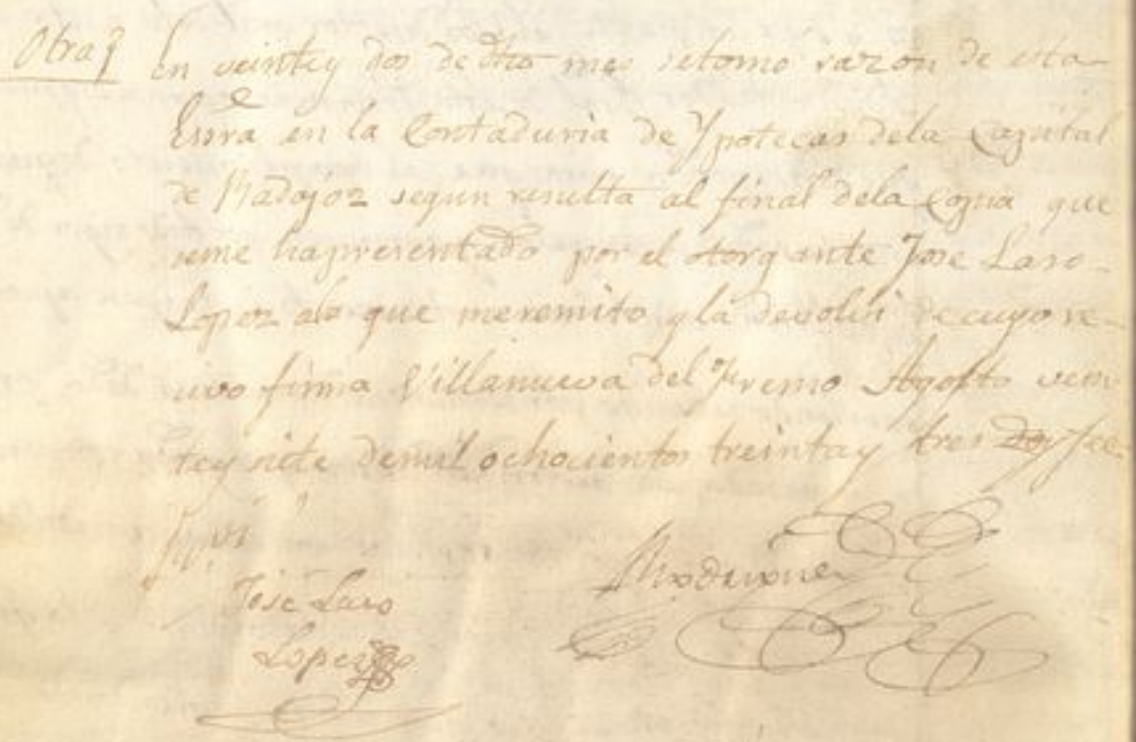 Otra En veintey dos de dho mes setomo razon de esta
Essra en la Contaduria de Ypotecas dela Capital
de Badajoz segun resulta al final dela Copia que
seme hapresentado por el otorgante Jose Laso
Lopez ala que meremito y la devolvi de cuyo re-
civo firma Villanueva del Fresno Agosto vein
tey siete demil ochocientos treintay tres Doy fee
José Laso
Lopez